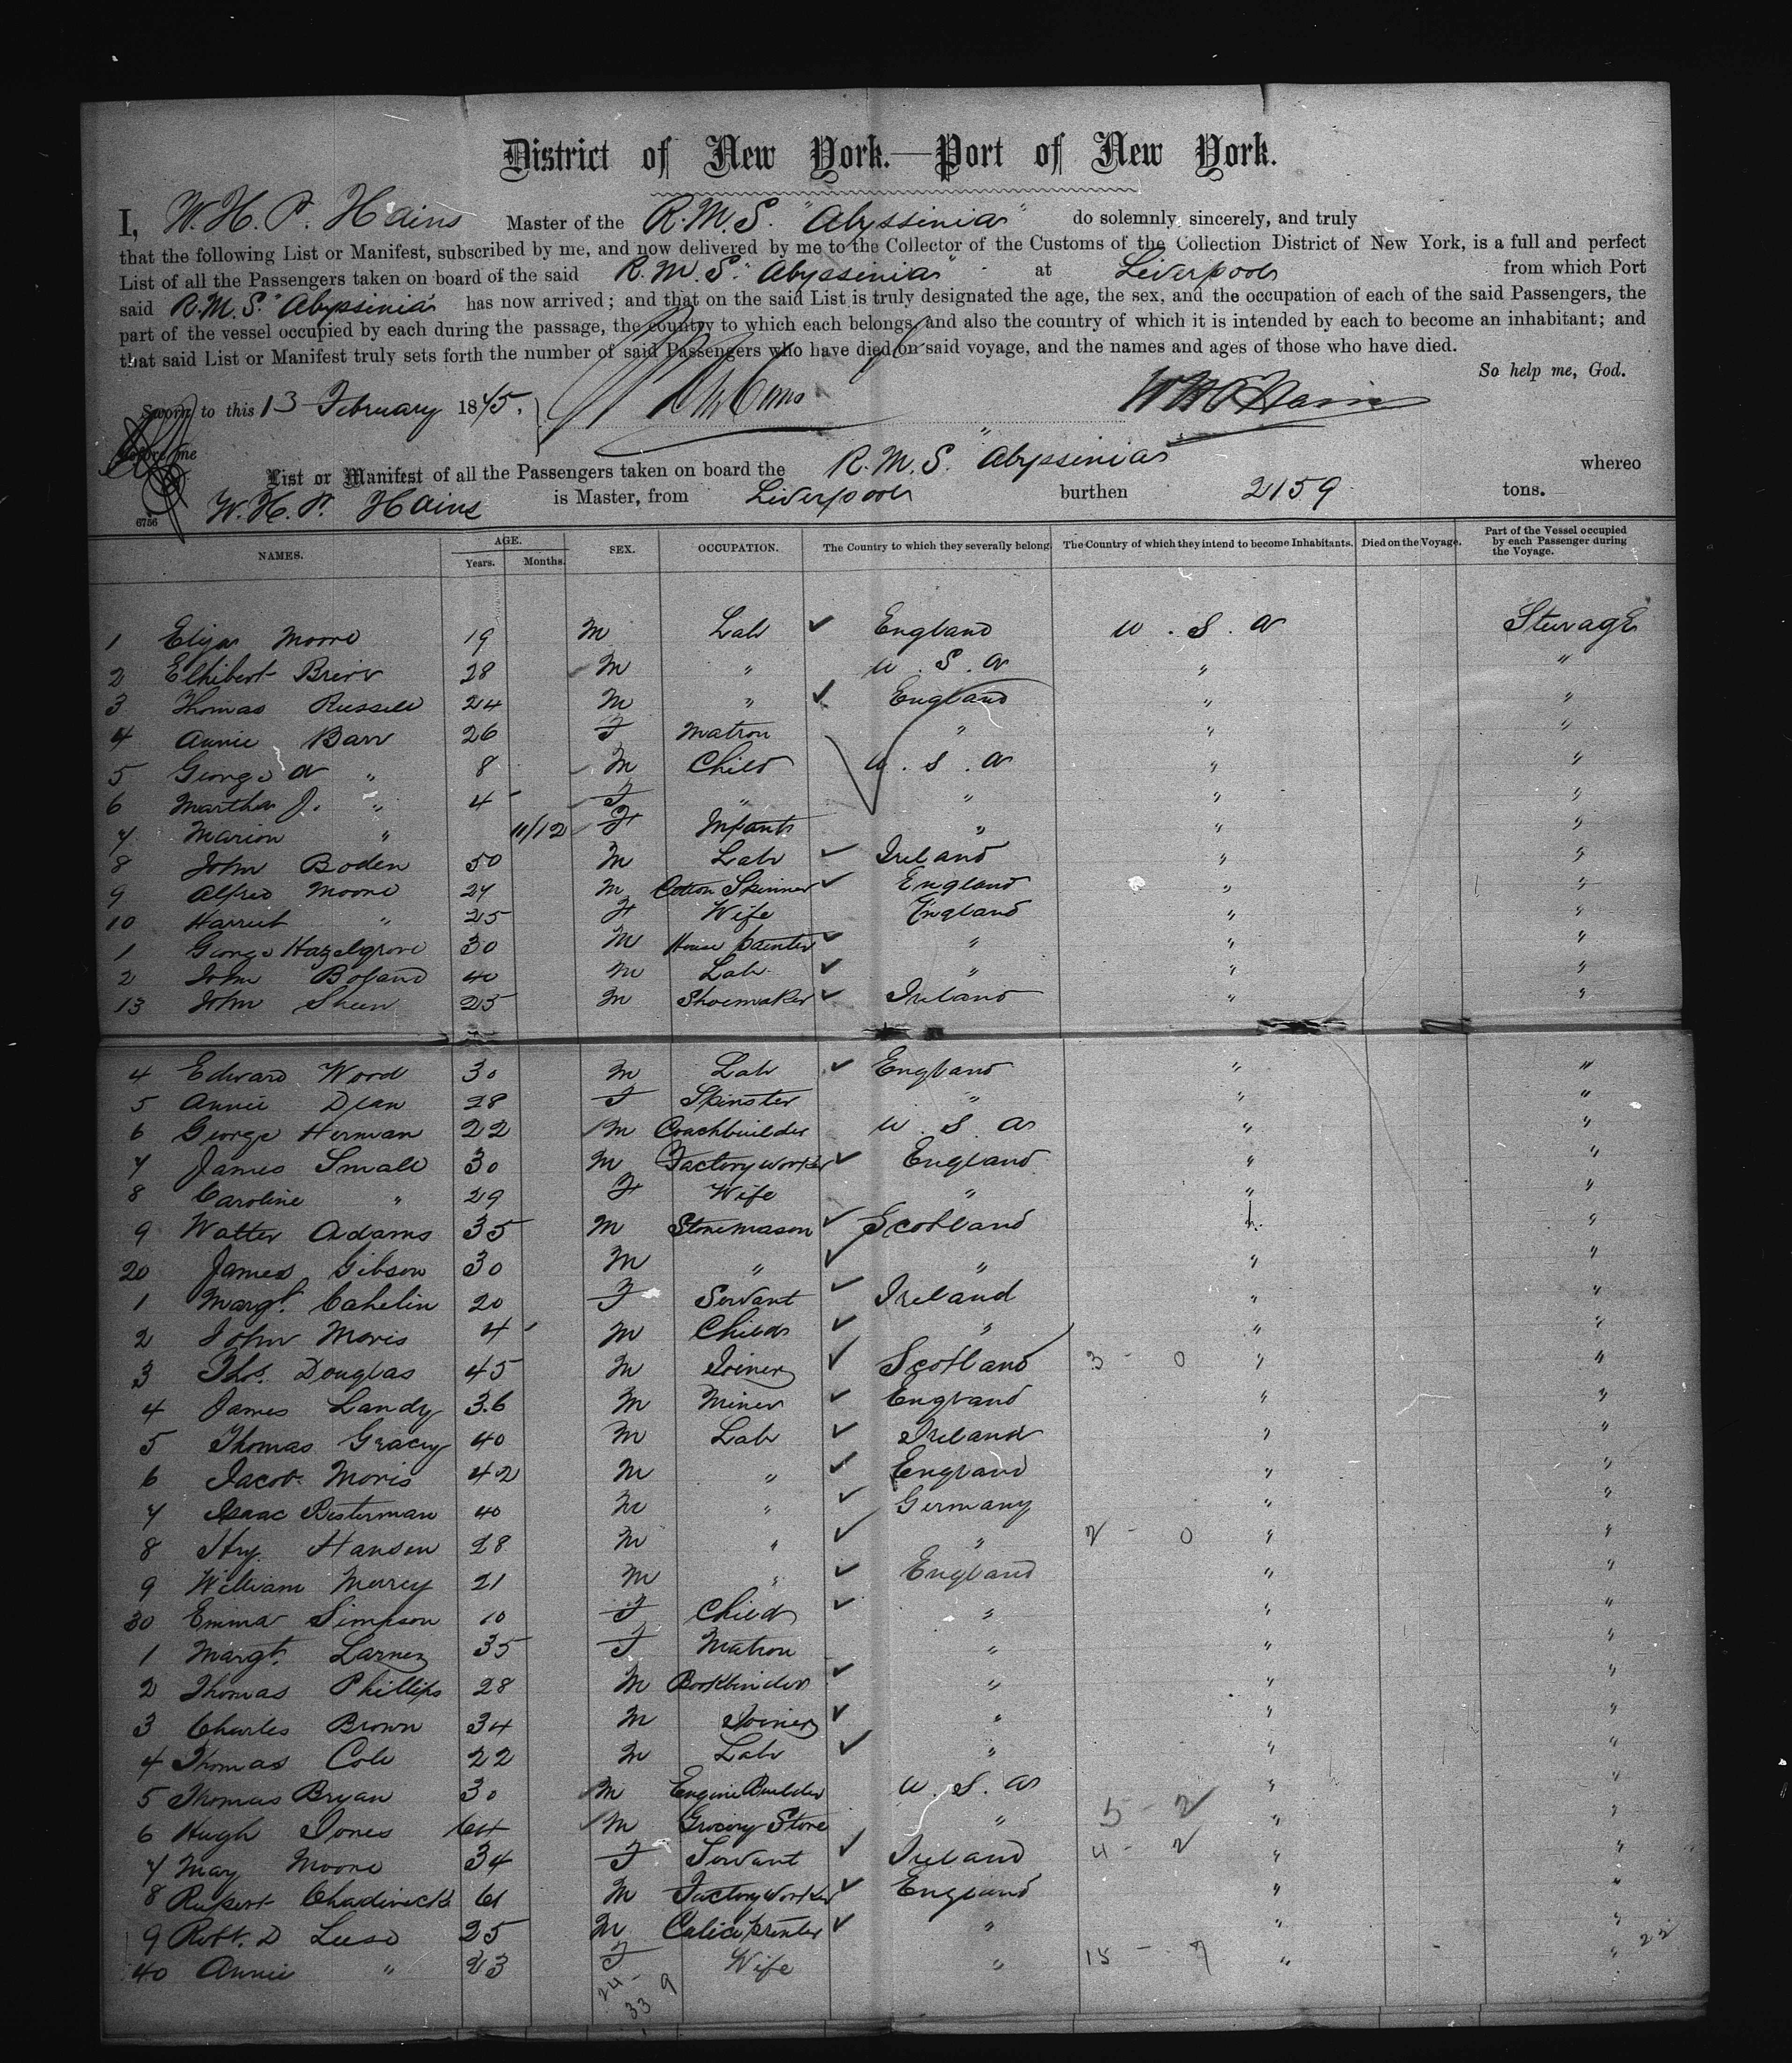 District of New York.—Port of New York.
I, W. H. P. Hains Master of the R.M.S. "Abyssinia" do solemnly, sincerely, and truly
that the following List or Manifest, subscribed by me, and now delivered by me to the Collector of the Customs of the Collection District of New York, is a full and perfect
List of all the Passengers taken on board of the said R.M.S. "Abyssinia" at Liverpool from which Port
said R.M.S. "Abyssinia" has now arrived; and that on the said List is truly designated the age, the sex, and the occupation of each of the said Passengers, the
part of the vessel occupied by each during the passage, the country to which each belongs, and also the country of which it is intended by each to become an inhabitant; and
that said List or Manifest truly sets forth the number of said Passengers who have died on said voyage, and the names and ages of those who have died.
So help me, God.
Sworn to this 13 February 1875. W H P Hains
Before me
List or Manifest of all the Passengers taken on board the R.M.S. "Abyssinia" whereo
W. H. P. Hains is Master, from Liverpool burthen 2159 tons.
6756
NAMES. AGE. Years. Months. SEX. OCCUPATION. The Country to which they severally belong. The Country of which they intend to become Inhabitants. Died on the Voyage. Part of the Vessel occupied by each Passenger during the Voyage.
1 Eliza Moore 19 M Lab ✓ England U.S.A Steerage
2 Brier 28 M " U.S.A " "
3 Thomas Russell 24 M " ✓ England " "
4 Annie Barr 26 F Matron " " "
5 George A " 8 M Child U.S.A " "
6 Martha J. " 4 F " " " "
7 Marion " 11/12 F Infant " " "
8 John Boden 50 M Lab ✓ Ireland " "
9 Alfred Moore 27 M Cotton Spinner ✓ England " "
10 Harriet " 25 F Wife England " "
1 George Hazelgrove 30 M House painter ✓ " " "
2 John Boland 40 M Lab ✓ " " "
13 John Sheen 25 M Shoemaker ✓ Ireland " "
4 Edward Wood 30 M Lab ✓ England " "
5 Annie Dean 28 F Spinster " " "
6 George Herman 22 M Coachbuilder U.S.A " "
7 James Small 30 M Factory worker ✓ England " "
8 Caroline " 29 F Wife " " "
9 Walter Adams 35 M Stonemason ✓ Scotland " "
20 James Gibson 30 M " ✓ " " "
1 Margt. Cahelin 20 F Servant ✓ Ireland " "
2 John Moris 4 M Child ✓ " " "
3 Thos. Douglas 45 M Joiner ✓ Scotland 3 - 0 " "
4 James Landy 36 M Miner ✓ England " "
5 Thomas Gracey 40 M Lab ✓ Ireland " "
6 Jacob Moris 42 M " ✓ England " "
7 Isaac Besterman 40 M " ✓ Germany " "
8 Hry. Hansen 28 M " ✓ " 2 - 0 " "
9 William Murcy 21 M " ✓ England " "
30 Emma Simpson 10 F Child ✓ " " "
1 Margt. Larner 35 F Matron " " "
2 Thomas Phillips 28 M Bookbinder ✓ " " "
3 Charles Brown 34 M Joiner ✓ " " "
4 Thomas Cole 22 M Lab ✓ " " "
5 Thomas Bryan 30 M Engine Builder U.S.A " "
6 Hugh Jones 64 M Grocery Store " 5 - 2 " "
7 May Moore 34 F Servant ✓ Ireland 4 - 2 " "
8 Rupert Chadwick 61 M Factory Worker ✓ England " "
9 Robt. D Leese 25 M Calico printer ✓ " " "
40 Annie " 23 F Wife " 15 - 7 " " 22
24 - 9
33